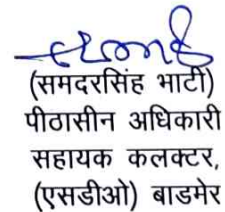 (समदरसिंह भाटी)
पीठासीन अधिकारी
सहायक कलक्टर,
(एसडीओ) बाडमेर